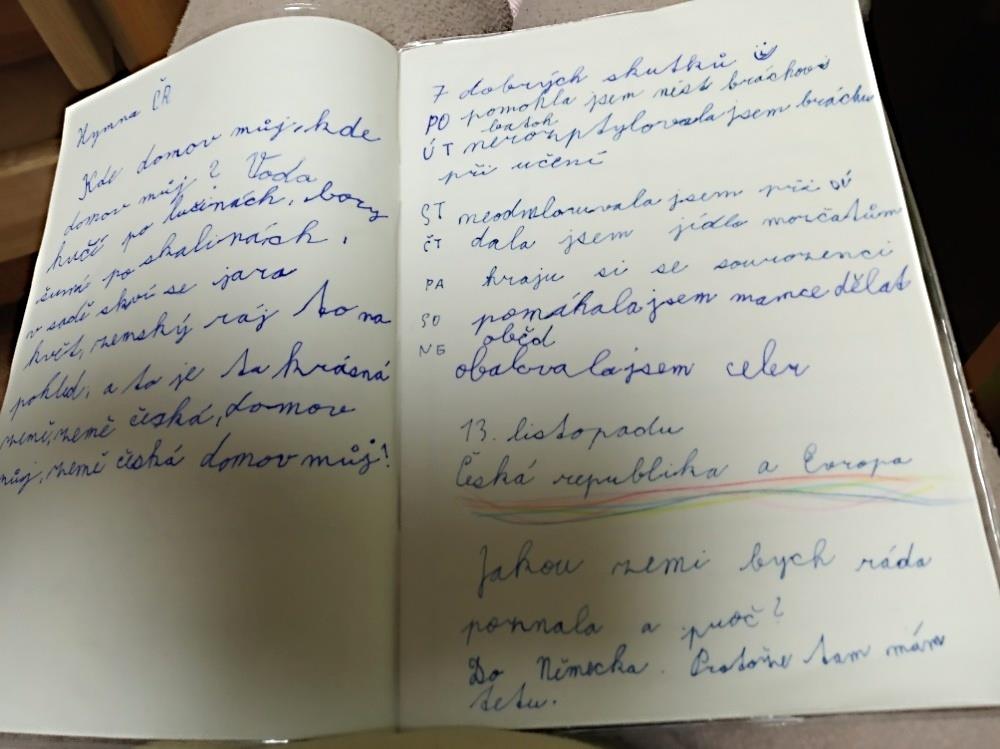 Hymna ČR
Kde domov můj, kde
domov můj? Voda
hučí po lučinách, bory
šumí po skalinách,
v sadě skví se jara
květ, zemský ráj to na
pohled, a to je ta krásná
země, země česká, domov
můj, země česká domov můj!
7 dobrých skutků
PO pomohla jsem nést bráchovi
batoh
ÚT nerozptylovala jsem bráchu
při učení
ST neodmlouvala jsem při DÚ
ČT dala jsem jídlo morčatům
PA hraju si se sourozenci
SO pomáhala jsem mamce dělat
NE oběd
obalovala jsem celer
13. listopadu
Česká republika a Evropa
Jakou zemi bych ráda
poznala a proč?
Do Německa. Protože tam mám
tetu.